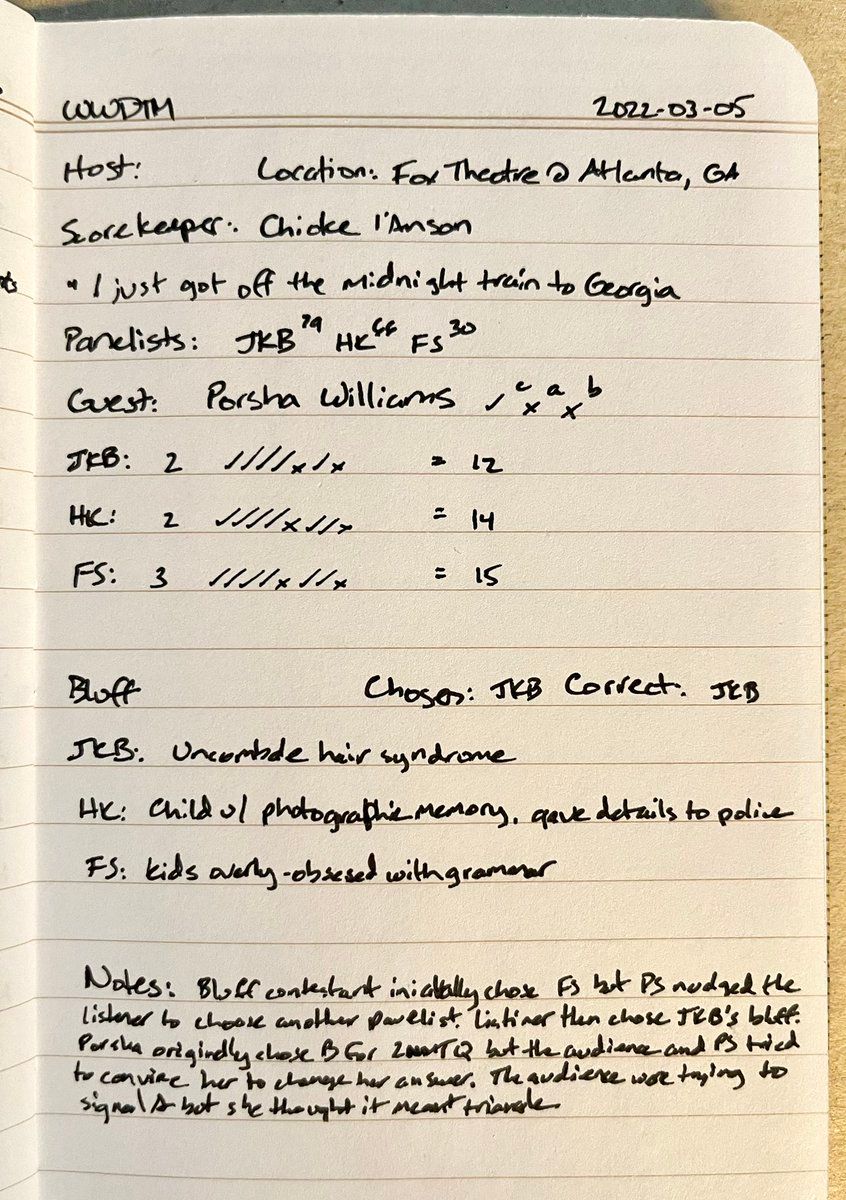 WWDTM 2022-03-05
Host: Location: Fox Theatre @ Atlanta, GA
Scorekeeper: Chioke I'Anson
" I just got off the midnight train to Georgia
Panelists: JKB 79 HK 66 FS 30
Guest: Porsha Williams ✓ c x a x b
JKB: 2 ✓✓✓✓x✓x = 12
HK: 2 ✓✓✓✓x✓✓x = 14
FS: 3 ✓✓✓✓x✓✓x = 15
Bluff Chosen: JKB Correct: JKB
JKB: Uncombale hair syndrome
HK: Child w/ photographic memory, gave details to police
FS: kids overly-obsesed with grammar
Notes: Bluff contestant initially chose FS but PS nudged the
listener to choose another panelist. Listiner then chose JKB's bluff.
Porsha originally chose B for 2nd Q but the audience and PS tried
to convince her to change her answer. The audience were trying to
signal A but she thought it meant triangle.